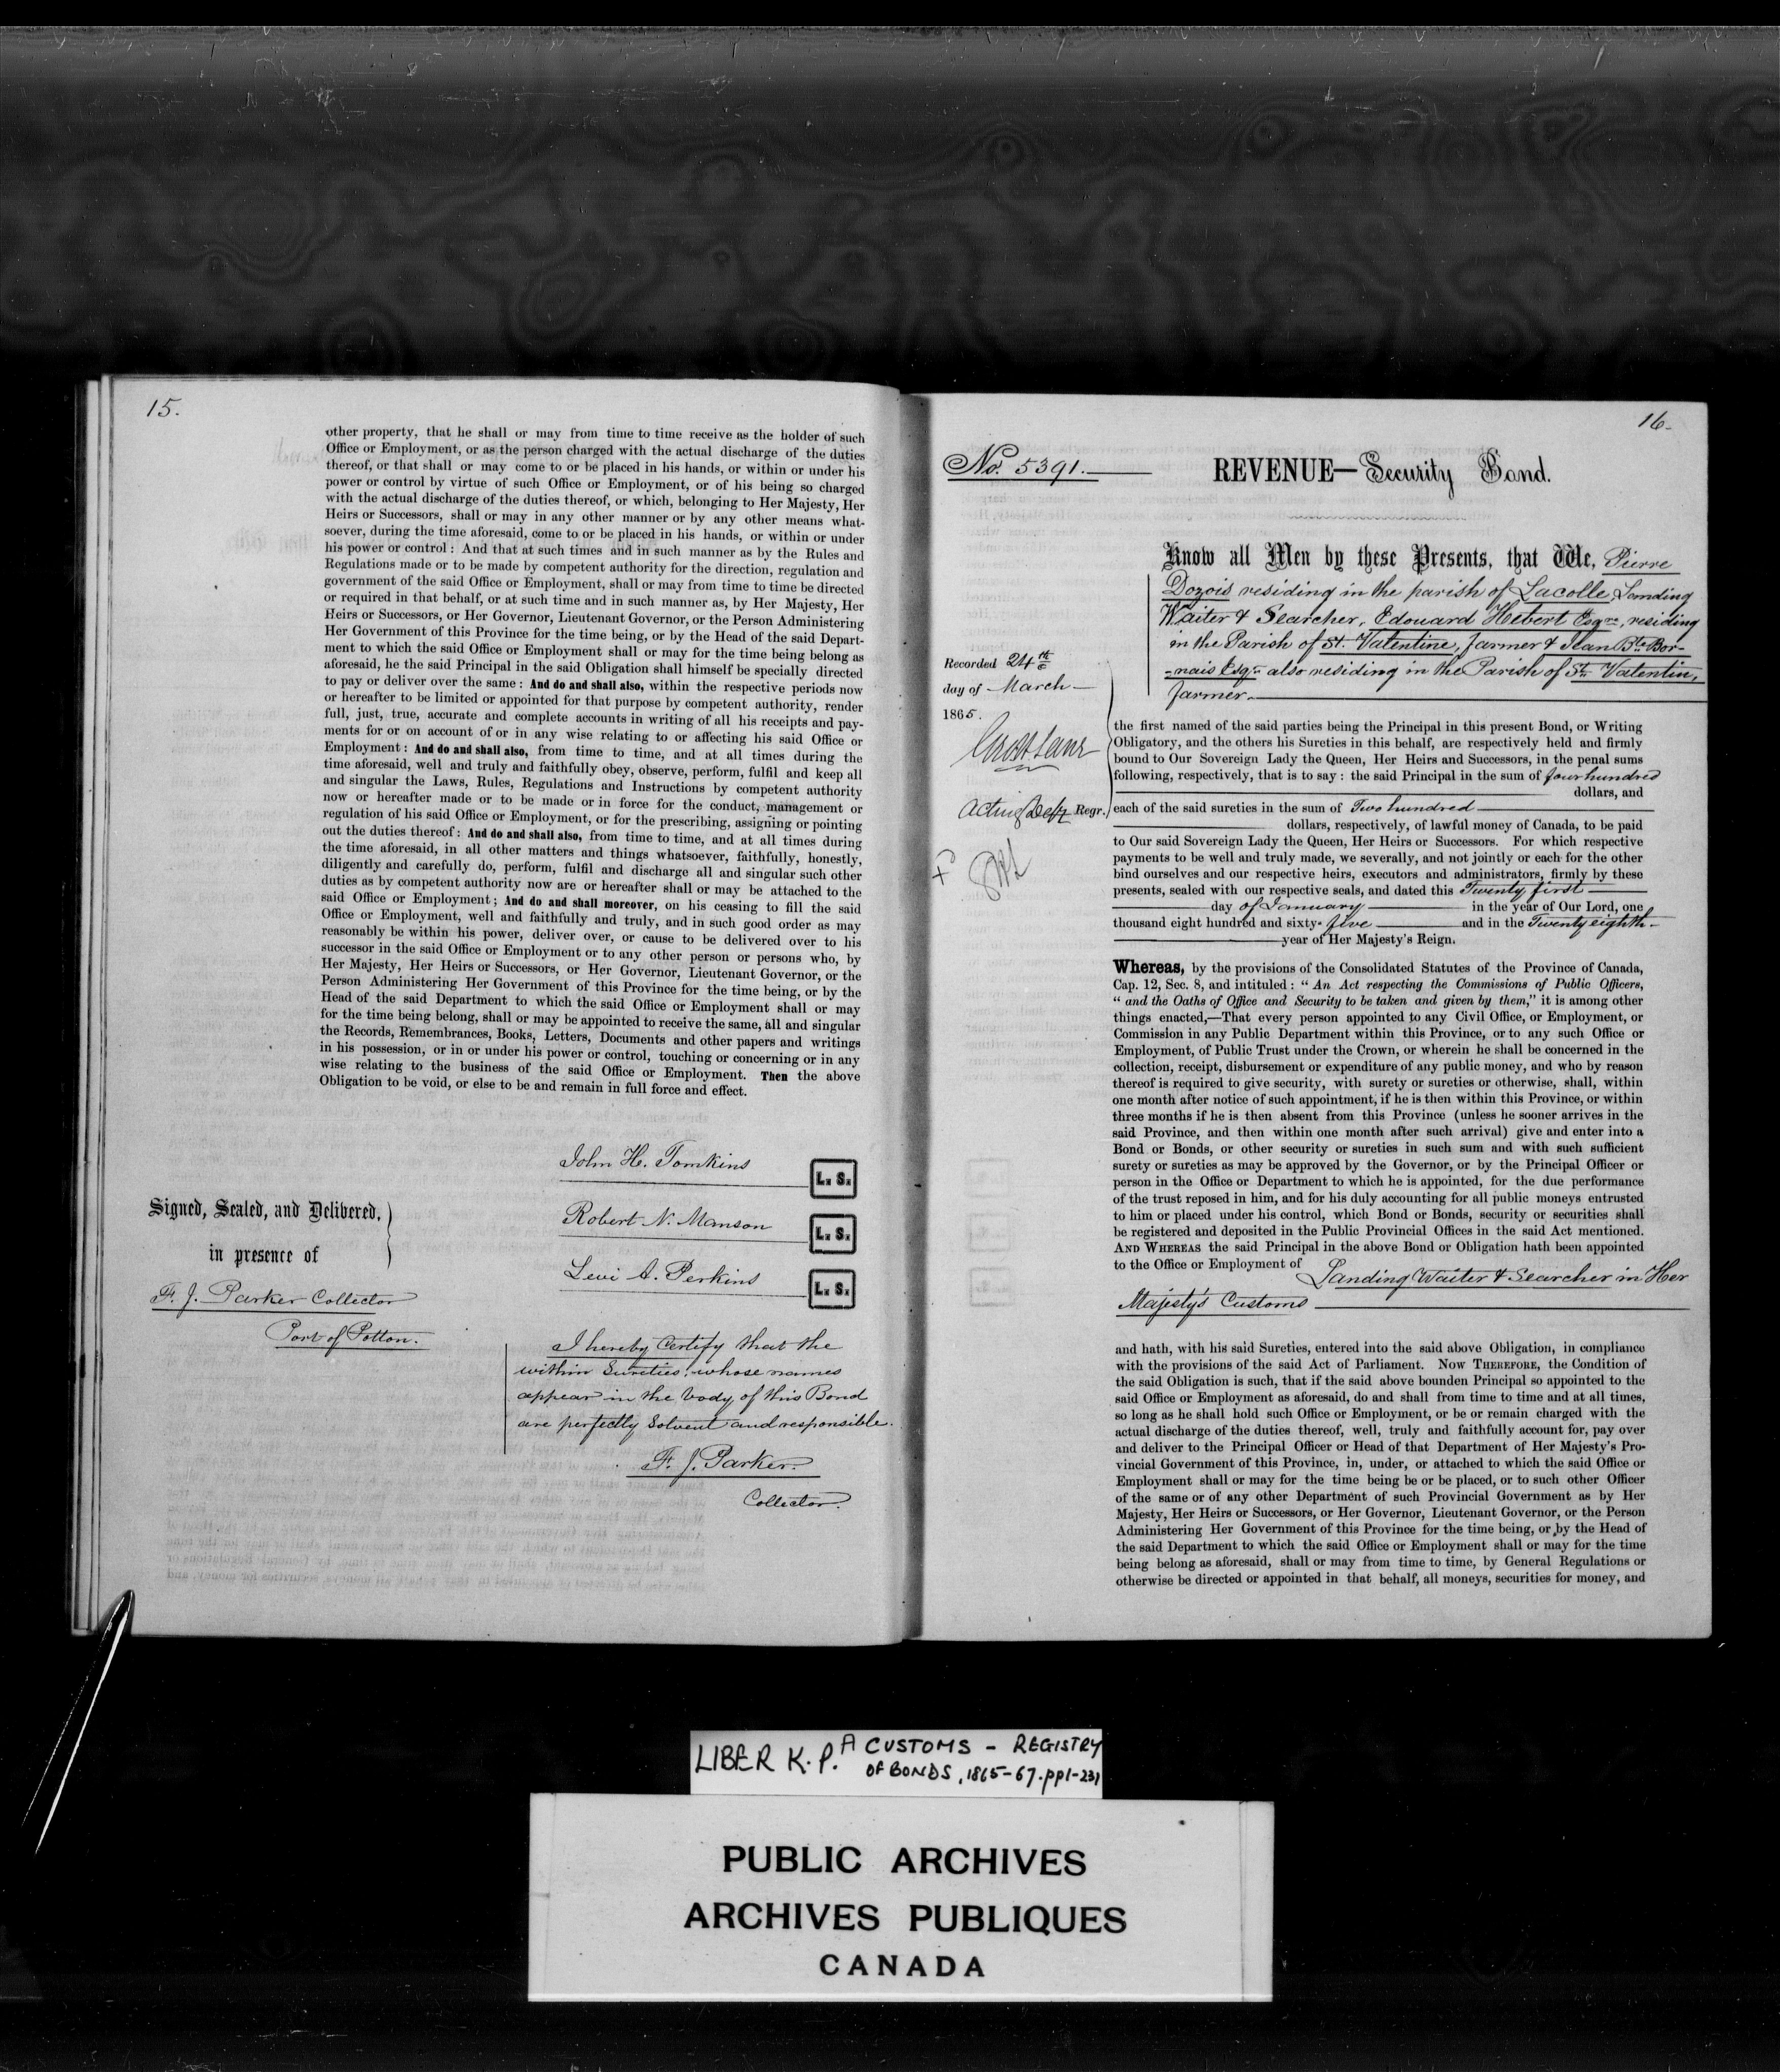 15.
other property, that he shall or may from time to time receive as the holder of such
Office or Employment, or as the person charged with the actual discharge of the duties
thereof, or that shall or may come to or be placed in his hands, or within or under his
power or control by virtue of such Office or Employment, or of his being so charged
with the actual discharge of the duties thereof, or which, belonging to Her Majesty, Her
Heirs or Successors, shall or may in any other manner or by any other means what-
soever, during the time aforesaid, come to or be placed in his hands, or within or under
his power or control : And that at such times and in such manner as by the Rules and
Regulations made or to be made by competent authority for the direction, regulation and
government of the said Office or Employment, shall or may from time to time be directed
or required in that behalf, or at such time and in such manner as, by Her Majesty, Her
Heirs or Successors, or Her Governor, Lieutenant Governor, or the Person Administering
Her Government of this Province for the time being, or by the Head of the said Depart-
ment to which the said Office or Employment shall or may for the time being belong as
aforesaid, he the said Principal in the said Obligation shall himself be specially directed
to pay or deliver over the same : And do and shall also, within the respective periods now
or hereafter to be limited or appointed for that purpose by competent authority, render
full, just, true, accurate and complete accounts in writing of all his receipts and pay-
ments for or on account of or in any wise relating to or affecting his said Office or
Employment : And do and shall also, from time to time, and at all times during the
time aforesaid, well and truly and faithfully obey, observe, perform, fulfil and keep all
and singular the Laws, Rules, Regulations and Instructions by competent authority
now or hereafter made or to be made or in force for the conduct, management or
regulation of his said Office or Employment, or for the prescribing, assigning or pointing
out the duties thereof : And do and shall also, from time to time, and at all times during
the time aforesaid, in all other matters and things whatsoever, faithfully, honestly,
diligently and carefully do, perform, fulfil and discharge all and singular such other
duties as by competent authority now are or hereafter shall or may be attached to the
said Office or Employment ; And do and shall moreover, on his ceasing to fill the said
Office or Employment, well and faithfully and truly, and in such good order as may
reasonably be within his power, deliver over, or cause to be delivered over to his
successor in the said Office or Employment or to any other person or persons who, by
Her Majesty, Her Heirs or Successors, or Her Governor, Lieutenant Governor, or the
Person Administering Her Government of this Province for the time being, or by the
Head of the said Department to which the said Office or Employment shall or may
for the time being belong, shall or may be appointed to receive the same, all and singular
the Records, Remembrances, Books, Letters, Documents and other papers and writings
in his possession, or in or under his power or control, touching or concerning or in any
wise relating to the business of the said Office or Employment. Then the above
Obligation to be void, or else to be and remain in full force and effect.
John H. Tomkins L. S.
Signed, Sealed, and Delivered,
Robert N. Manson L. S.
in presence of
Levi A. Perkins L. S.
F. J. Parker Collector
Port of Potton.
I hereby Certify that the
within Sureties, whose names
appear in the body of this Bond
are perfectly Solvent and responsible.
F. J. Parker.
Collector.
16.
No. 5391.
REVENUE—Security Bond.
Know all Men by these Presents, that We, Pierre
Dozois residing in the parish of Lacolle, Landing
Waiter & Searcher, Edouard Hebert Esqre, residing
in the Parish of St. Valentine, farmer & Jean Bte Bor-
-nais Esqr also residing in the Parish of St. Valentin,
farmer.
Recorded 24th
day of March
1865.
Acting Depy Regr.
the first named of the said parties being the Principal in this present Bond, or Writing
Obligatory, and the others his Sureties in this behalf, are respectively held and firmly
bound to Our Sovereign Lady the Queen, Her Heirs and Successors, in the penal sums
following, respectively, that is to say : the said Principal in the sum of four hundred
dollars, and
each of the said sureties in the sum of Two hundred
dollars, respectively, of lawful money of Canada, to be paid
to Our said Sovereign Lady the Queen, Her Heirs or Successors. For which respective
payments to be well and truly made, we severally, and not jointly or each for the other
bind ourselves and our respective heirs, executors and administrators, firmly by these
presents, sealed with our respective seals, and dated this Twenty first
day of January in the year of Our Lord, one
thousand eight hundred and sixty-five and in the Twenty eighth
year of Her Majesty's Reign.
Whereas, by the provisions of the Consolidated Statutes of the Province of Canada,
Cap. 12, Sec. 8, and intituled : " An Act respecting the Commissions of Public Officers,
" and the Oaths of Office and Security to be taken and given by them," it is among other
things enacted,—That every person appointed to any Civil Office, or Employment, or
Commission in any Public Department within this Province, or to any such Office or
Employment, of Public Trust under the Crown, or wherein he shall be concerned in the
collection, receipt, disbursement or expenditure of any public money, and who by reason
thereof is required to give security, with surety or sureties or otherwise, shall, within
one month after notice of such appointment, if he is then within this Province, or within
three months if he is then absent from this Province (unless he sooner arrives in the
said Province, and then within one month after such arrival) give and enter into a
Bond or Bonds, or other security or sureties in such sum and with such sufficient
surety or sureties as may be approved by the Governor, or by the Principal Officer or
person in the Office or Department to which he is appointed, for the due performance
of the trust reposed in him, and for his duly accounting for all public moneys entrusted
to him or placed under his control, which Bond or Bonds, security or securities shall
be registered and deposited in the Public Provincial Offices in the said Act mentioned.
AND WHEREAS the said Principal in the above Bond or Obligation hath been appointed
to the Office or Employment of Landing Waiter & Searcher in Her
Majesty's Customs
and hath, with his said Sureties, entered into the said above Obligation, in compliance
with the provisions of the said Act of Parliament. NOW THEREFORE, the Condition of
the said Obligation is such, that if the said above bounden Principal so appointed to the
said Office or Employment as aforesaid, do and shall from time to time and at all times,
so long as he shall hold such Office or Employment, or be or remain charged with the
actual discharge of the duties thereof, well, truly and faithfully account for, pay over
and deliver to the Principal Officer or Head of that Department of Her Majesty's Pro-
vincial Government of this Province, in, under, or attached to which the said Office or
Employment shall or may for the time being be or be placed, or to such other Officer
of the same or of any other Department of such Provincial Government as by Her
Majesty, Her Heirs or Successors, or Her Governor, Lieutenant Governor, or the Person
Administering Her Government of this Province for the time being, or by the Head of
the said Department to which the said Office or Employment shall or may for the time
being belong as aforesaid, shall or may from time to time, by General Regulations or
otherwise be directed or appointed in that behalf, all moneys, securities for money, and
LIBER K.P. A CUSTOMS - REGISTRY
OF BONDS, 1865-67. pp1-231
PUBLIC ARCHIVES
ARCHIVES PUBLIQUES
CANADA